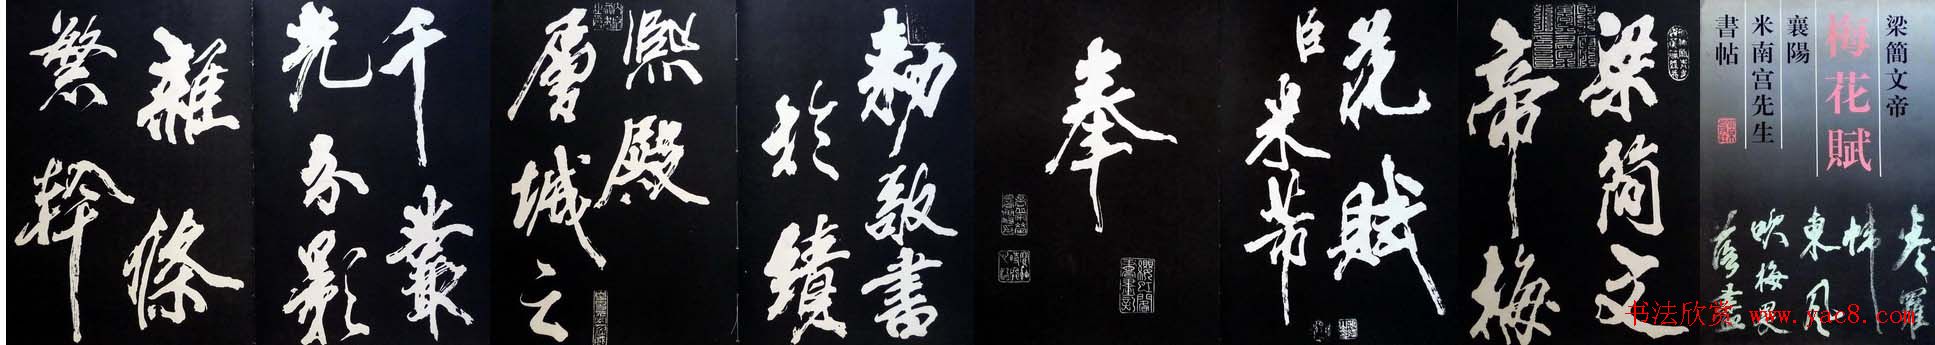 梁簡文帝
梅花賦
襄陽
米南宮先生
書帖
梁简文
帝梅
花賦
臣米芾
奉
勅敬書
於績
熙殿
層城之
千叢
光分影
雜條
繁幹
书法欣赏 www.yac8.com